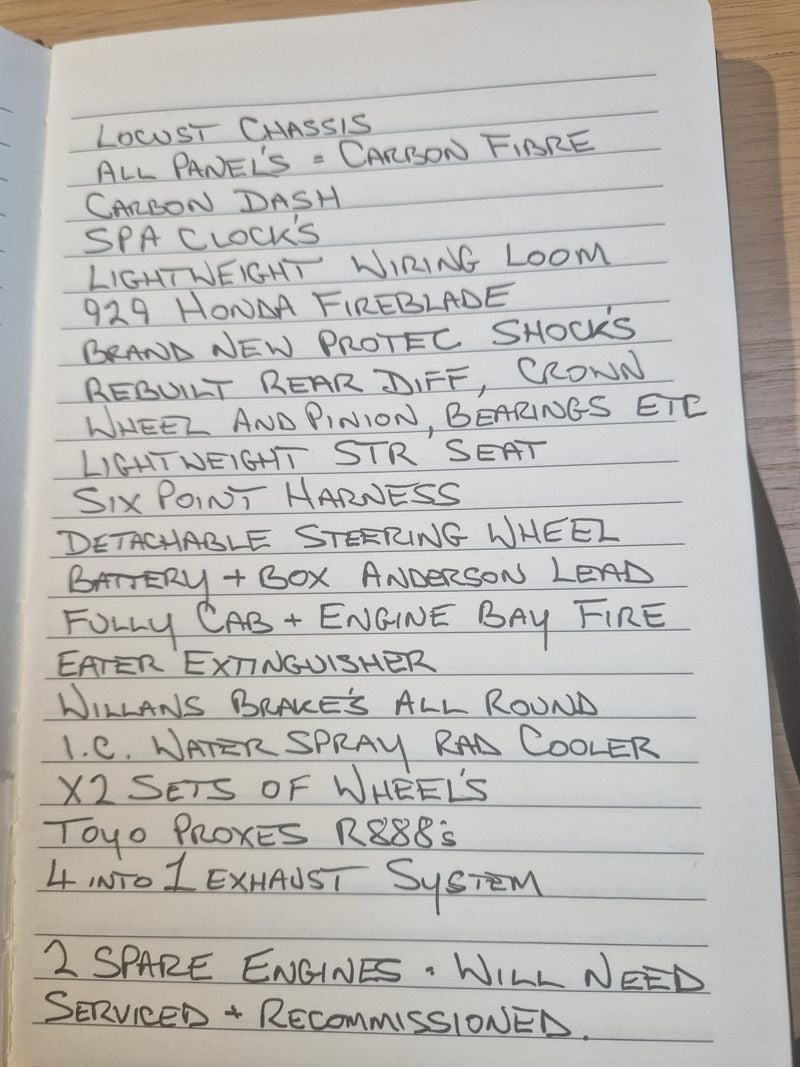 LOCUST CHASSIS
ALL PANEL'S = CARBON FIBRE
CARBON DASH
SPA CLOCK'S
LIGHTWEIGHT WIRING LOOM
929 HONDA FIREBLADE
BRAND NEW PROTEC SHOCK'S
REBUILT REAR DIFF, CROWN
WHEEL AND PINION, BEARINGS ETC
LIGHTWEIGHT STR SEAT
SIX POINT HARNESS
DETACHABLE STEERING WHEEL
BATTERY + BOX ANDERSON LEAD
FULLY CAB + ENGINE BAY FIRE
EATER EXTINGUISHER
WILLANS BRAKE'S ALL ROUND
I.C. WATER SPRAY RAD COOLER
X2 SETS OF WHEEL'S
TOYO PROXES R888's
4 INTO 1 EXHAUST SYSTEM
2 SPARE ENGINES . WILL NEED
SERVICED + RECOMMISSIONED.